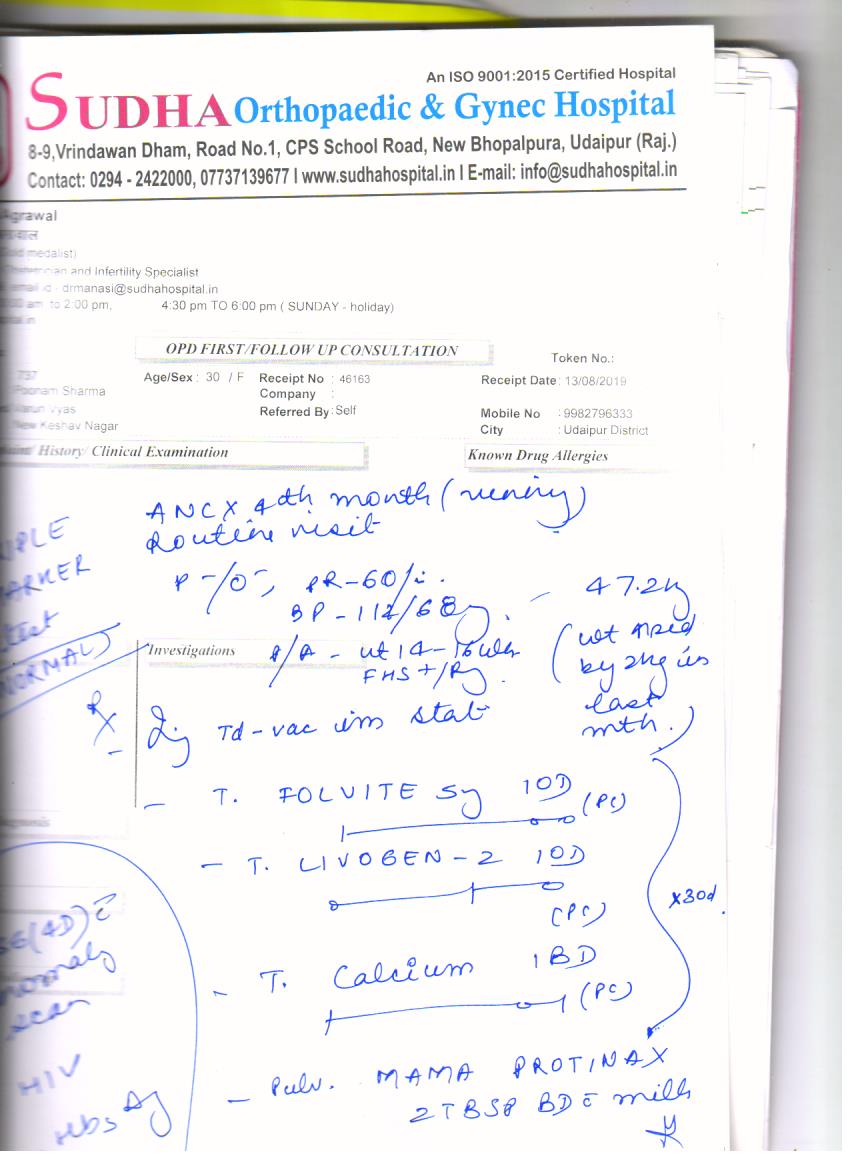 An ISO 9001:2015 Certified Hospital
SUDHA Orthopaedic & Gynec Hospital
8-9,Vrindawan Dham, Road No.1, CPS School Road, New Bhopalpura, Udaipur (Raj.)
Contact: 0294 - 2422000, 07737139677 I www.sudhahospital.in I E-mail: info@sudhahospital.in
Agrawal
medalist)
and Infertility Specialist
drmanasi@sudhahospital.in
to 2:00 pm, 4:30 pm TO 6:00 pm ( SUNDAY - holiday)
OPD FIRST/FOLLOW UP CONSULTATION
Token No.:
737 Age/Sex : 30 / F Receipt No : 46163 Receipt Date : 13/08/2019
Poonam Sharma Company :
Varun Vyas Referred By : Self Mobile No : 9982796333
New Keshav Nagar City : Udaipur District
History/ Clinical Examination Known Drug Allergies
ANC X 4th month (
Routine visit
PR-60/
BP-112/68 - 47.2kg
Investigations
P/A - ut 14-16 wks (wt
FHS +/Rg. by 2kg in
last
mth.)
NORMAL)
Rx
Inj Td-vac im stat
- T. FOLVITE 5mg 1OD (PC)
- T. LIVOGEN-Z 1OD
(PC)
x30d.
- T. Calcium 1BD
(PC)
- Pulv. MAMA PROTINAX
2TBSP BD c̄ milk
scan
HIV
HbsAg